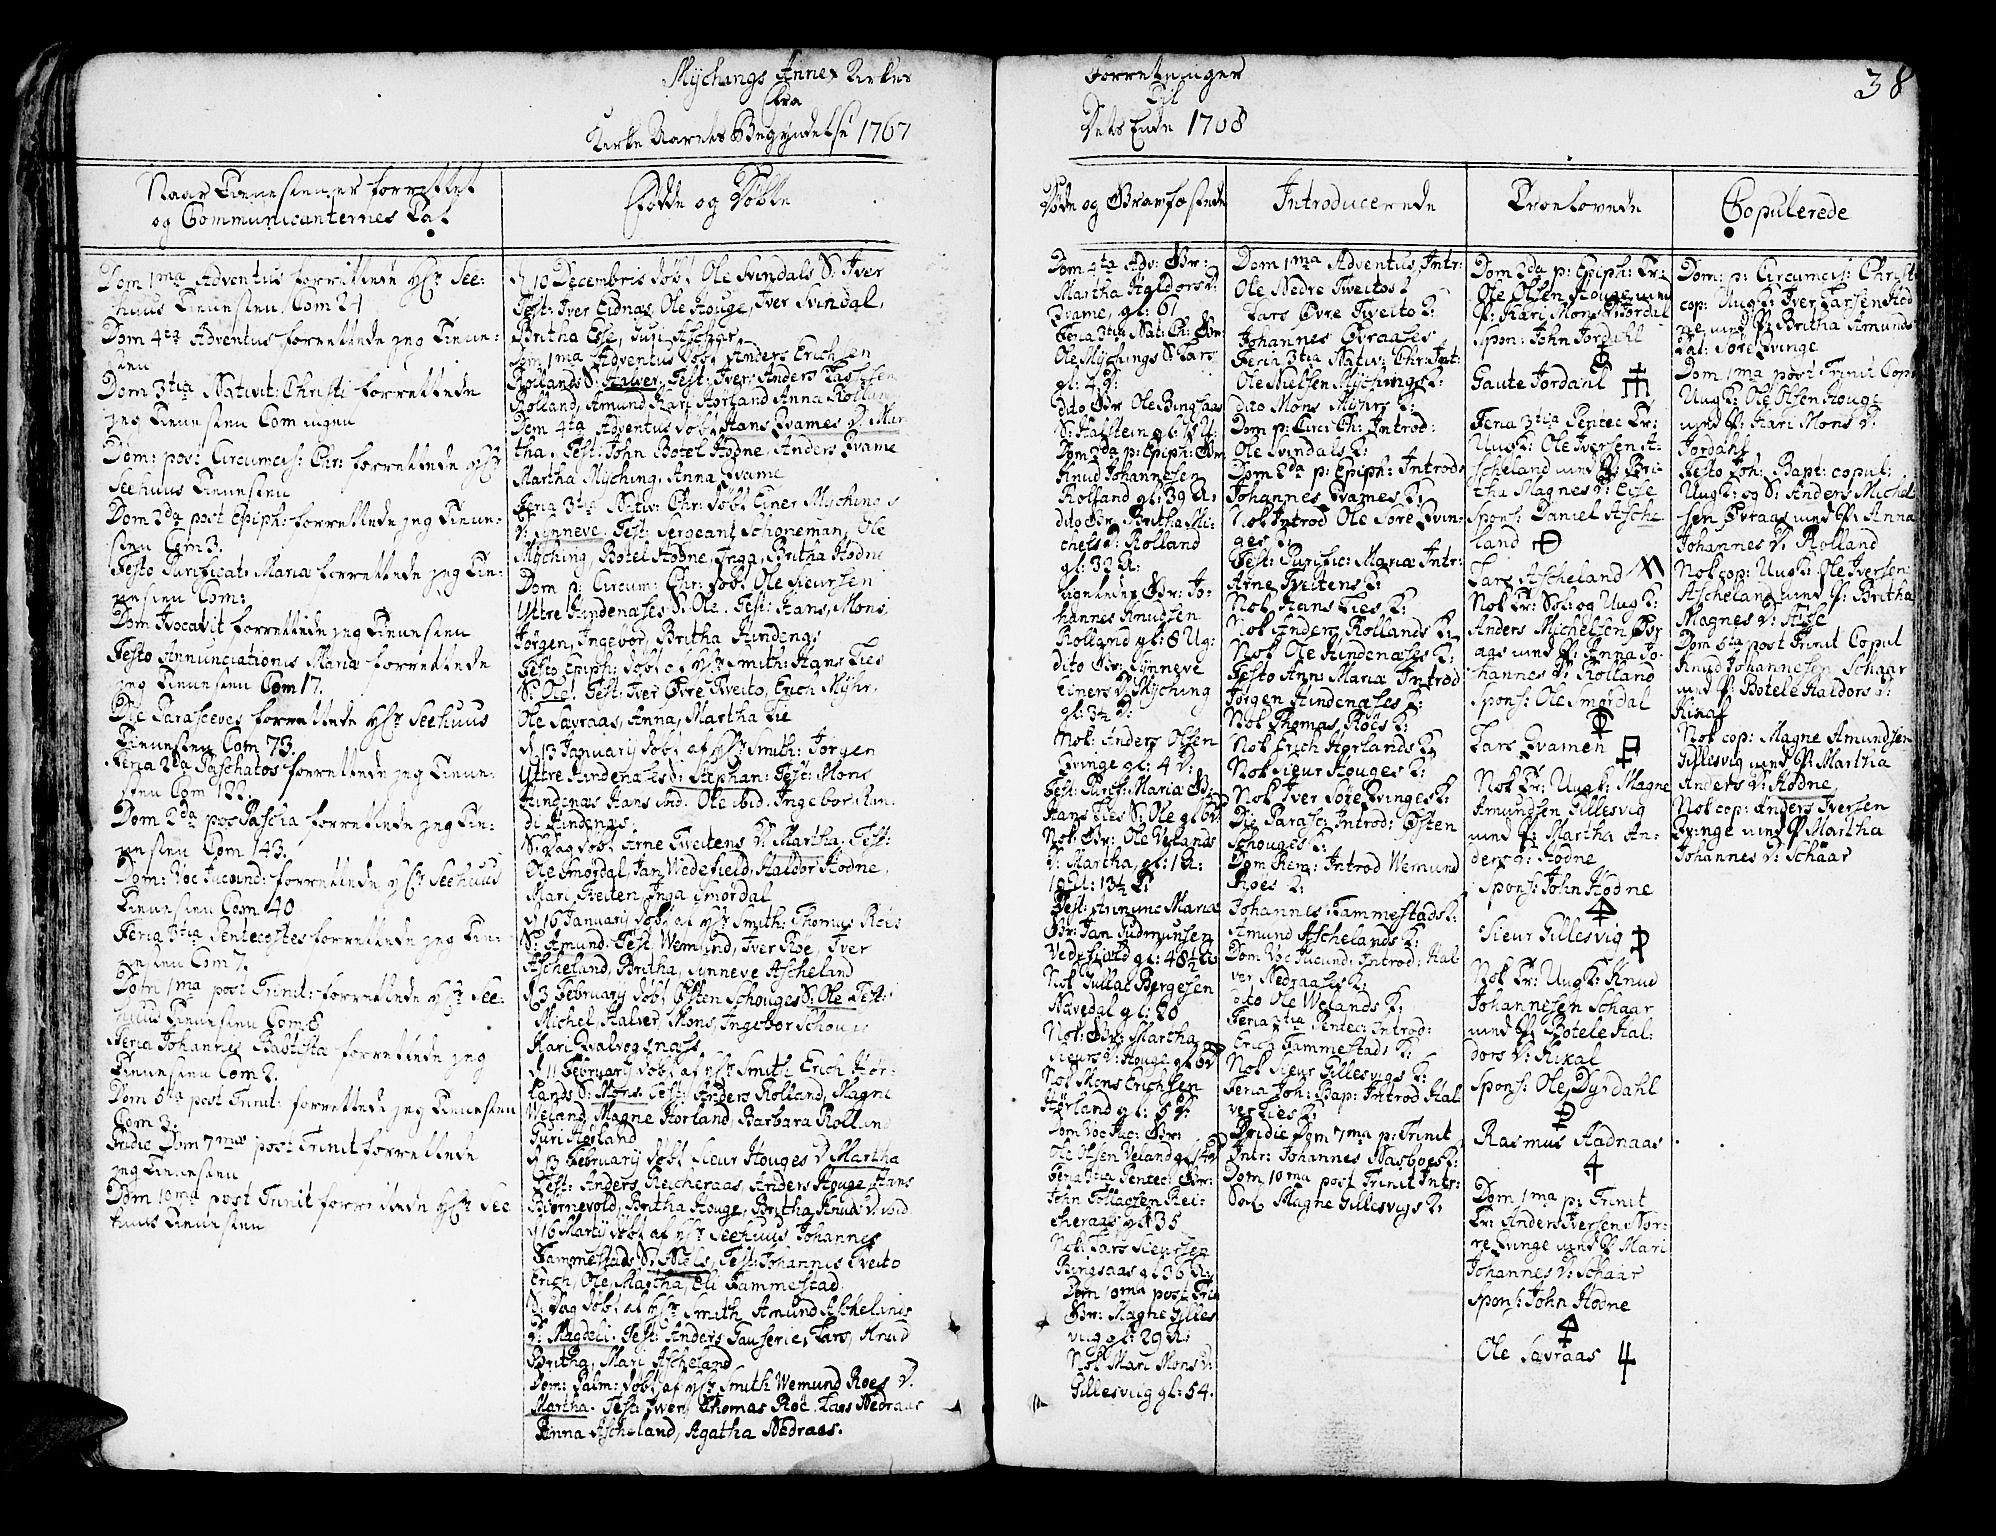 Mÿchangs Annex Kirkes
fra
Kirke Aarets Begyndelse 1767
Naar Tienesten er forrettet
og Communicanternes Tal
Fødde og Døbte
Dom 1ma Adventus forrettede Hr See-
huus Tienesten Com 21
Dom 4ta Adventus forrettede jeg Tiene-
sten
Dom 3tia Nativit: Christi forrettede
jeg Tienesten Com ingen
Dom: post Circumcis: Chr: forrettede Hr
Seehuus Tienesten
Dom 2da post Epiph: forrettede jeg Tiene-
sten Com 3.
Festo Purificat: Mariæ forrettede jeg Tie-
nesten Com:
Dom Invocavit forrettede jeg Tienesten
Festo Annunciationis Mariæ forrettede
jeg Tienesten Com 17.
Die Parasceves forrettede Hr Seehuus
Tienesten Com 73.
Feria 2da Paschatos forrettede jeg Tiene-
sten Com 122.
Dom 2da pos Pascha forrettede jeg Tie-
nesten Com 143.
Dom: Voc Jucund: forrettede Hr Seehuus
Tienesten Com 40
Feria 3tia Pentecostes forrettede jeg Tie-
nesten Com 7.
Dom 1ma post Trinit: forrettede Hr See-
huus Tienesten Com 8
Feria Johannes Baptista forrettede jeg
Tienesten Com 2.
Dom 6ta post Trinit: forrettede jeg Tienesten
Com 3.
Pridie Dom 7mæ post Trinit forrettede
jeg Tienesten
Dom 10ma post Trinit forrettede Hr See
huus Tienesten
d 10 Decembris døbt Ole Svindals S: Iver
Test: Iver Eidnas, Ole Houge, Iver Svindal,
Britha Esse, Susi Ascheger
Dom 1ma Adventus døbt Anders Erichsen
Rollands S: Halver, Test: Iver, Anders Larssen
Rolland, Amund, Kari Horland Anna Rolland
Dom 4ta Adventus døbt Hans Qvames D: Mar
tha. Test: John Botel Hodne, Anders Qvame
Martha Mÿching, Anna Qvame
Feria 3tia Nativ: Chr: døbt Einer Mÿchings
D: Synneve, Test: Sergeant Schöneman, Ole
Mÿching, Botel Hodne, Inga, Britha Hodne
Dom p: Circum: Chr: døbt Ole Sieursen
Uttre Hindenases S: Ole. Test: Hans, Mons,
Jørgen, Ingebor, Britha Hindenas
Festo Epiph: døbt af Hr Smith: Hans Lies
S: Ole. Test: Iver Øvre Tweito, Erich Mÿhr,
Ole Savraas, Anna, Martha Lie
d 13 Januarÿ døbt af Hr Smith: Jørgen
Uttre Hindenases S: Stephan: Test: Mons
Hindenas Hans ibid. Ole ibid. Ingebor Kin-
di Hindenas
S: Dag døbt Arne Tweitens D: Martha. Test:
Ole Smordal, Jan Wedefield, Haldor Hodne,
Mari Tveiten Inga Smordal
d 16 January døbt af Hr Smith: Thomas Roes
S: Amund. Test: Wemund, Iver Roe, Iver
Ascheland, Britha, Synneve Ascheland
d 3 February døbt Østen Schouges S: Ole Test:
Michel, Halver, Mons, Ingebor Schouge
Kari Qvalvognæss
d 11 February døbt af Hr Smith Erich Hor-
lands S: Mons. Test: Anders Rolland, Magne
Weland, Magne Horland, Barbara Rolland
Guri Horland
d 13 February døbt Sieur Houges D Martha
Test: Anders Reicheraas, Anders Houge, Hans
Biørnevold, Britha Houge, Britha Knuds D: ibid.
d 16 Martÿ døbt af Hr Seehuus Johannes
Tammestads S: Niels, Test: Johannes Tveito
Erich, Ole, Martha, Eli Tammestad.
S: Dag døbt af Hr Smith Amund Aschelands
D: Magdeli. Test: Anders Gauserie, Lars, Knud
Britha, Mari Ascheland
Dom: Palm: døbt af Hr Smith Wemund Roes D.
Martha. Test: Iwer, Thomas Roe. Lars Nedraas
Anna Ascheland, Agatha Nedraas.
Forretninger
til
Dets Ende 1768
38
Døde og Gravfæstede
Introducerede
Troelovede
Copulerede
Dom 4ta Adv: Gr:
Martha Haldors D:
Qvame, gl: 61
Feria 3tia Nat: Ch: Gr:
Ole Mÿchings S: Lars
gl: 4 D:
dito Gr: Ole Bingsaas
S: Halstein gl 6 U:
Dom 2da p: Epiph: Gr:
Knud Johannesen
Rolland gl: 39 A:
dito Gr: Britha Mi-
chels D: Rolland
gl: 32 A:
Ligeledes Gr: Jo-
hannes Knudsen
Rolland gl: 8 Ug:
dito Gr: Synneve
Einers D: Mÿching
gl: 3½ D:
Nok: Anders Olsen
Qvinge gl: 4 D:
Fest: Purif: Mariæ Gr:
Hans Lies S: Ole gl 6 D
Nok: Gr: Ole Velands
D: Martha, gl: 1 A:
Fest: Annunc Mariæ
Gr: Jan Gudmunsen
Vedefield gl: 48½ A
Nok Gullat Børgesen
Navedal gl: 20
Nok: Gr: Martha
Sieurs D: Houge gl 6 D
Nok Mons Erichsen
Horland gl: 5 D:
Dom Voc Juc: Gr:
Ole Olsen Veland gl
Feria 3tia Pentec: Gr:
John Tollagsen Rei-
cheraas gl 35
Nok: Lars Sieursen
Bingsaas gl 36 A:
Dom 10ma post Trin
Gr: Magne Gilles
viig gl: 29 A:
Nok Mari Mons D:
Gillesviig gl: 54.
Dom 1ma Adventus, Intr:
Ole Nedre Tweitos K:
Lars Øvre Tweito K:
Johannes Øvraases
Feria 3tia Nativ: Chr Int:
Ole Nielsen Mÿchings K:
dito Mons Mÿhrs K:
Dom p: Circ: Ch: Introd:
Ole Svindals K:
Dom 2da p: Epiph: Introd:
Johannes Qvames K:
Nok Introd Ole Søre Qvin-
ges K:
Fest: Purific: Mariæ Intr:
Arne Tveitens K:
Nok Hans Lies K:
Nok Anders Rollands K:
Nok Ole Hindenases K:
Festo Ann: Mariæ Introd
Jørgen Hindenases K:
Nok Thomas Roes K:
Nok Erich Horlands K:
Nok Sieur Houges K:
Nok Iver Søre Qvinges K:
Die Parasc: Introd: Østen
Schouges K:
Dom Rem: Introd Wemund
Roes K:
Johannes Tammestads K:
Amund Aschelands K:
Dom Voc Jucund: Introd: Hal
ver Nedraases K:
dito Ole Welands K:
Feria 3tia Pentec: Introd:
Erich Tammestads K:
Nok Sieur Gillesvigs K:
Feria Joh: Bap: Introd Hal
ver Lies K:
Pridie Dom 7ma p: Trinit
Intr: Johannes Nasboes K:
Dom 10ma post Trinit Intr:
Sal Magne Gillesvigs K:
Dom 2da p: Epiph: Tr:
Ole Olsen Houge med
P: Kari Mons D: Jordal
Spon: John Jordahl
Gaute Jordahl
Feria 3tia Pentec Tr:
Ung K: Ole Iversen A-
scheland med P: Bri-
tha Magnes D: Eise
Spons: Daniel Asche
land
Lars Ascheland
Nok Tr: Sol: og Ung K:
Anders Michelsen Øvr
aas med P: Anna Jo-
hannes D: Rolland
Spons: Ole Smørdal
Lars Qvamen
Nok Tr: Ung K: Magne
Amundsen Gillesvig
med P: Martha An-
ders D: Hodne
Spons: John Hodne
Sieur Gillesvig
Nok Tr: Ung K: Knud
Johannesen Schaar
med P: Botele Hal-
dors D: Kixal
Spons: Ole Dyrdahl
Rasmus Aadnaas
Dom 1ma p: Trinit
Tr: Anders Iversen Nor-
re Qvinge med P Mari
Johannes D: Schaar
Spons: John Hodne
Ole Savraas
Dom: p: Circumcis: Christi
cop: Ung K: Iver Larsen Hod
ne med P: Britha Amunds
Dat: Søre Qvinge
Dom 1ma post Trinit Cop:
Ung K: Ole Olsen Houge
med P: Kari Mons D:
Jordahl
Festo Joh: Bapt: copul:
Ung K: og S: Anders Michel
sen Øvraas med P: Anna
Johannes D: Rolland
Nok cop: Ung K: Ole Iversen
Ascheland med P: Britha
Magnes D: Eise
Dom 6ta post Trinit Copul
Knud Johannesen Schaar
med P: Botele Haldors D:
Kixal
Nok cop: Magne Amundsen
Gillesvig med P Martha
Anders D: Hodne
Nok cop: Anders Iversen
Qvinge med P Martha
Johannes D: Schåar